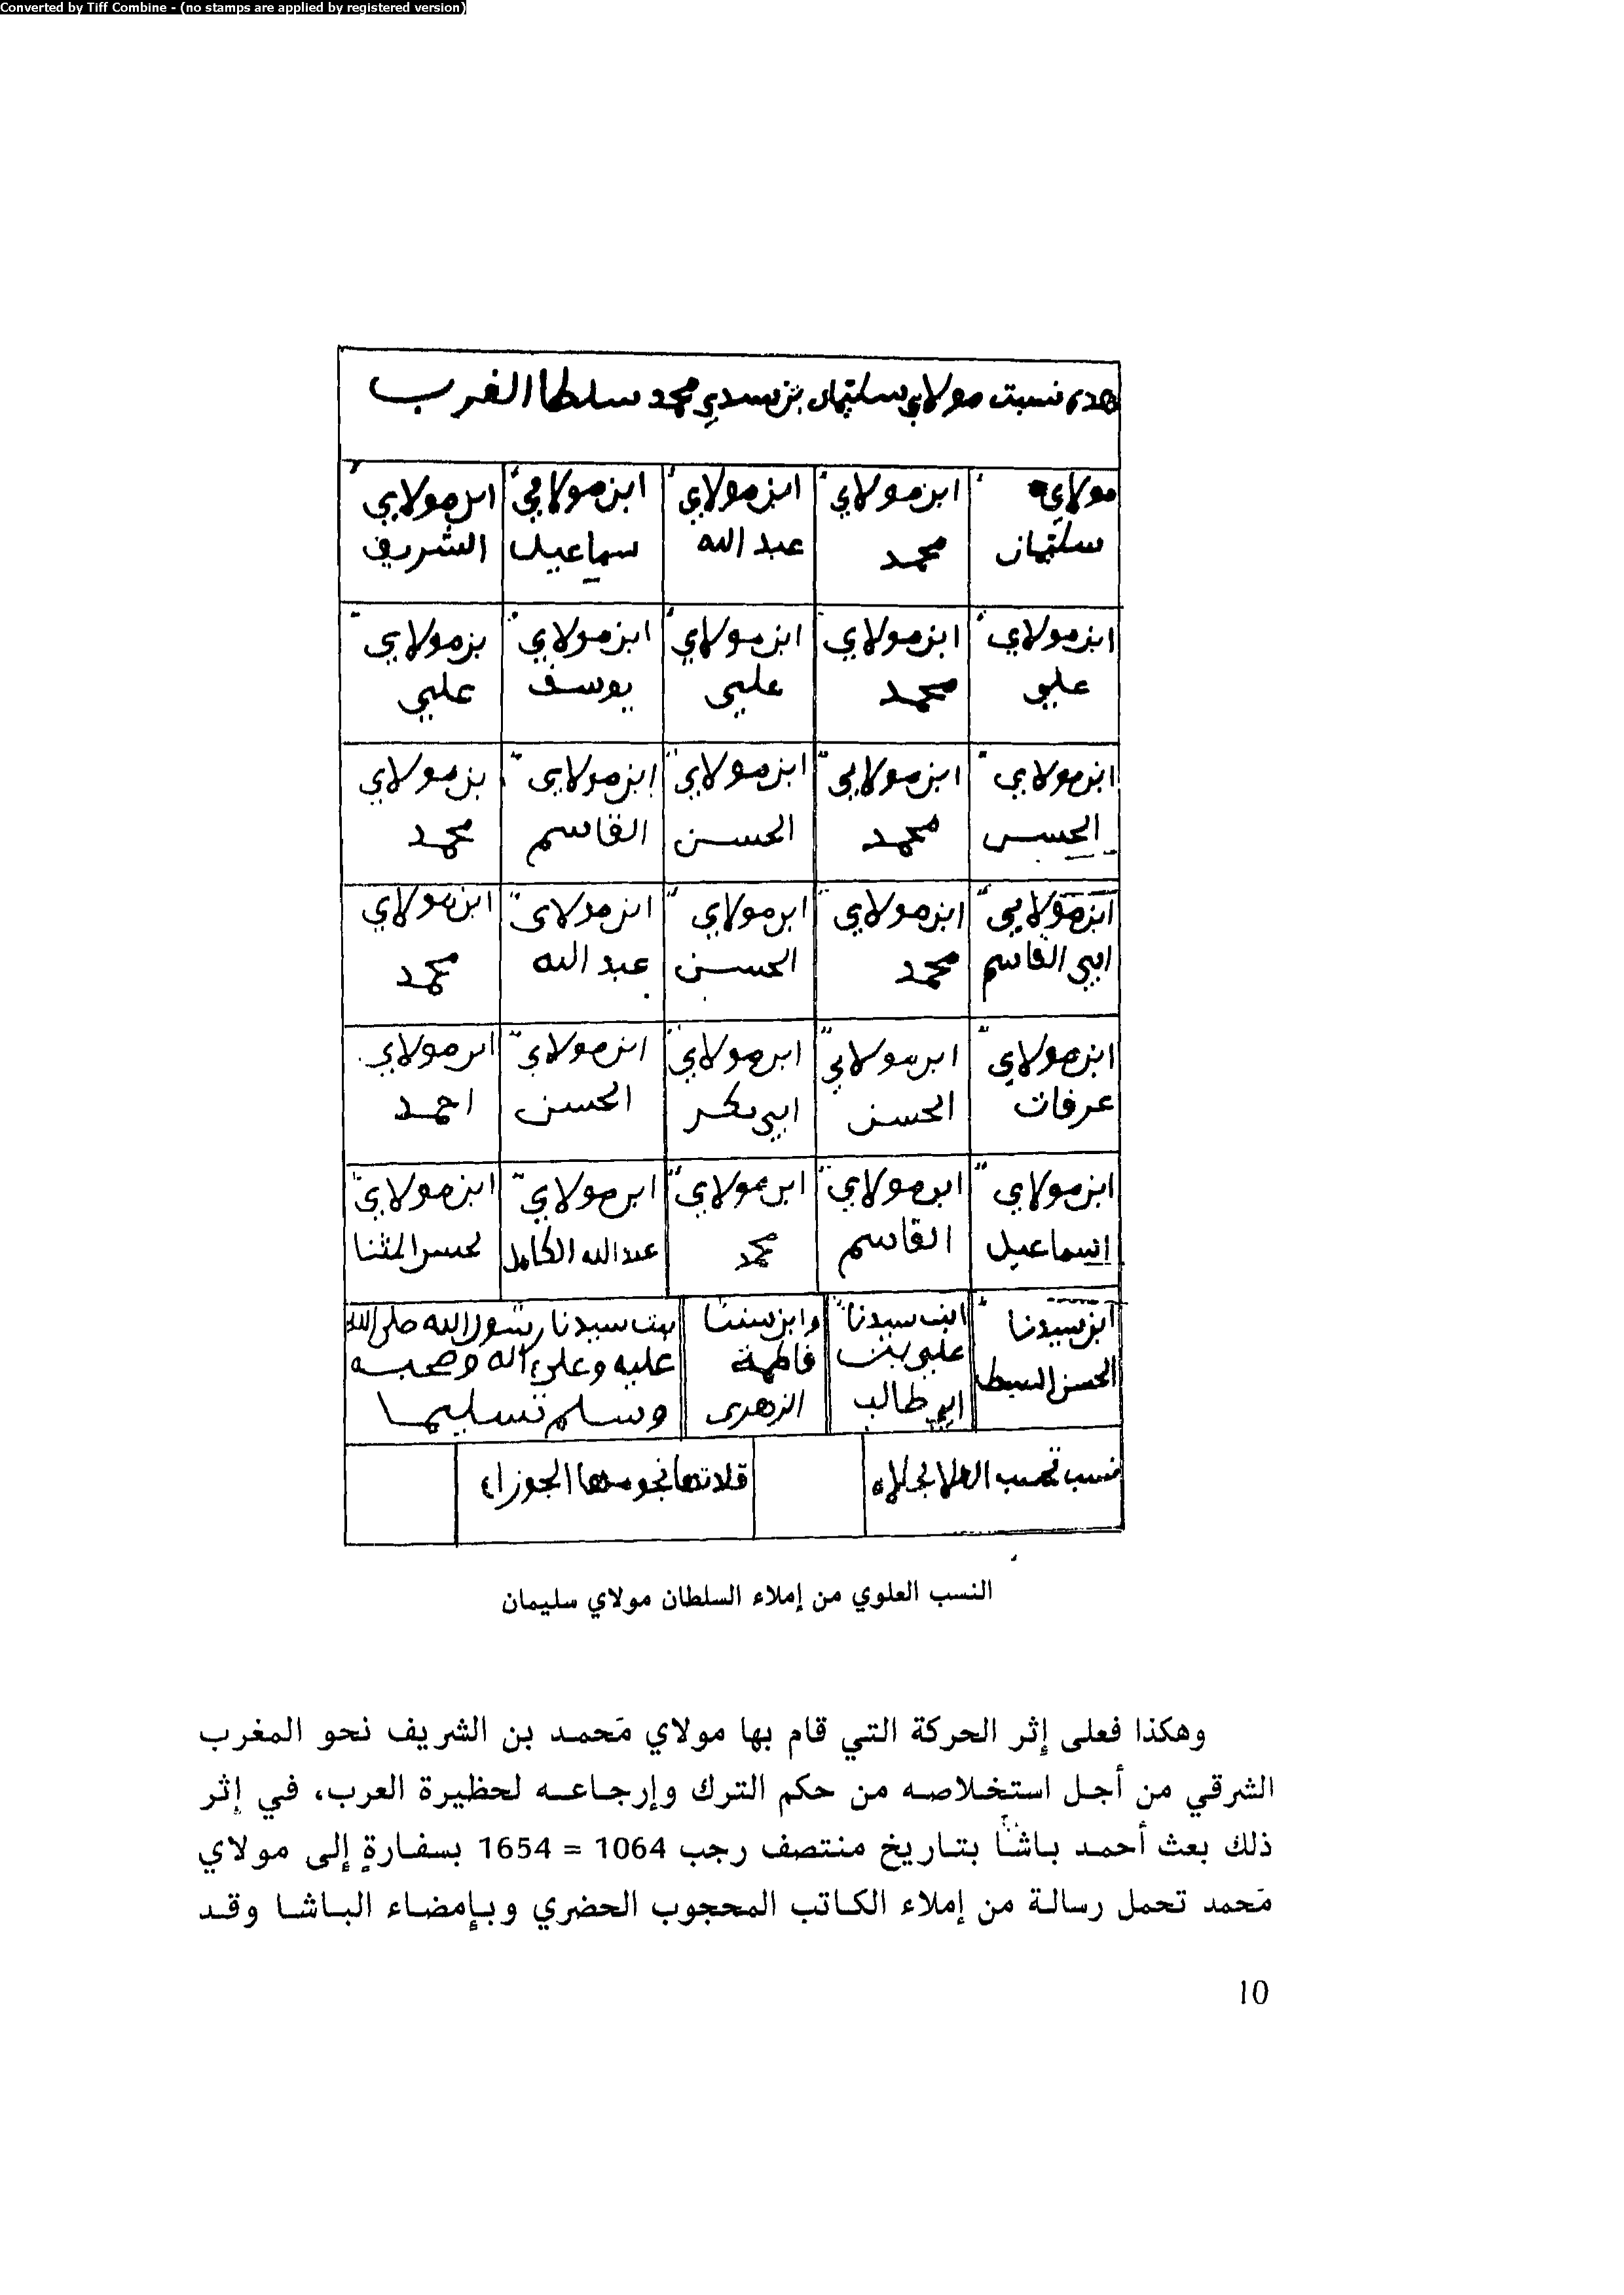 Converted by Tiff Combine - (no stamps are applied by registered version)
هده نسبت مولاي سليمان بن سيدي محمد سلطا الغرب
مولاي سليمان
ابن مولاي محمد
ابن مولاي عبد الله
ابن مولاي سماعيل
ابن مولاي الشريف
ابن مولاي علي
ابن مولاي محمد
ابن مولاي علي
ابن مولاي يوسف
بن مولاي علي
ابن مولاي الحسن
ابن مولاي محمد
ابن مولاي الحسن
ابن مولاي القاسم
بن مولاي محمد
ابن مولاي ابي القاسم
ابن مولاي محمد
ابن مولاي الحسن
ابن مولاي عبد الله
ابن مولاي محمد
ابن مولاي عرفات
ابن مولاي الحسن
ابن مولاي ابي بكر
ابن مولاي الحسن
ابن مولاي احمد
ابن مولاي اسماعيل
ابن مولاي القاسم
ابن مولاي محمد
ابن مولاي عبد الله الكامل
ابن مولاي لحسن المثنا
ابن سيدنا الحسن السبط
ابن سيدنا علي بن ابي طالب
وابن ستنا فاطمة الزهرى
بنت سيدنا رسول الله صلى الله
عليه وعلى آله وصحبه
وسلم تسليما
نسب تحسب العلا بحلاه
قلادتها نجومها الجوزاء
النسب العلوي من إملاء السلطان مولاي سليمان
وهكذا فعلى إثر الحركة التي قام بها مولاي مَحمد بن الشريف نحو المغرب
الشرقي من أجل استخلاصه من حكم الترك وإرجاعه لحظيرة العرب، في إثر
ذلك بعث أحمد باشا بتاريخ منتصف رجب 1064 = 1654 بسفارةٍ إلى مولاي
مَحمد تحمل رسالة من إملاء الكاتب المحجوب الحضري وبإمضاء الباشا وقد
10